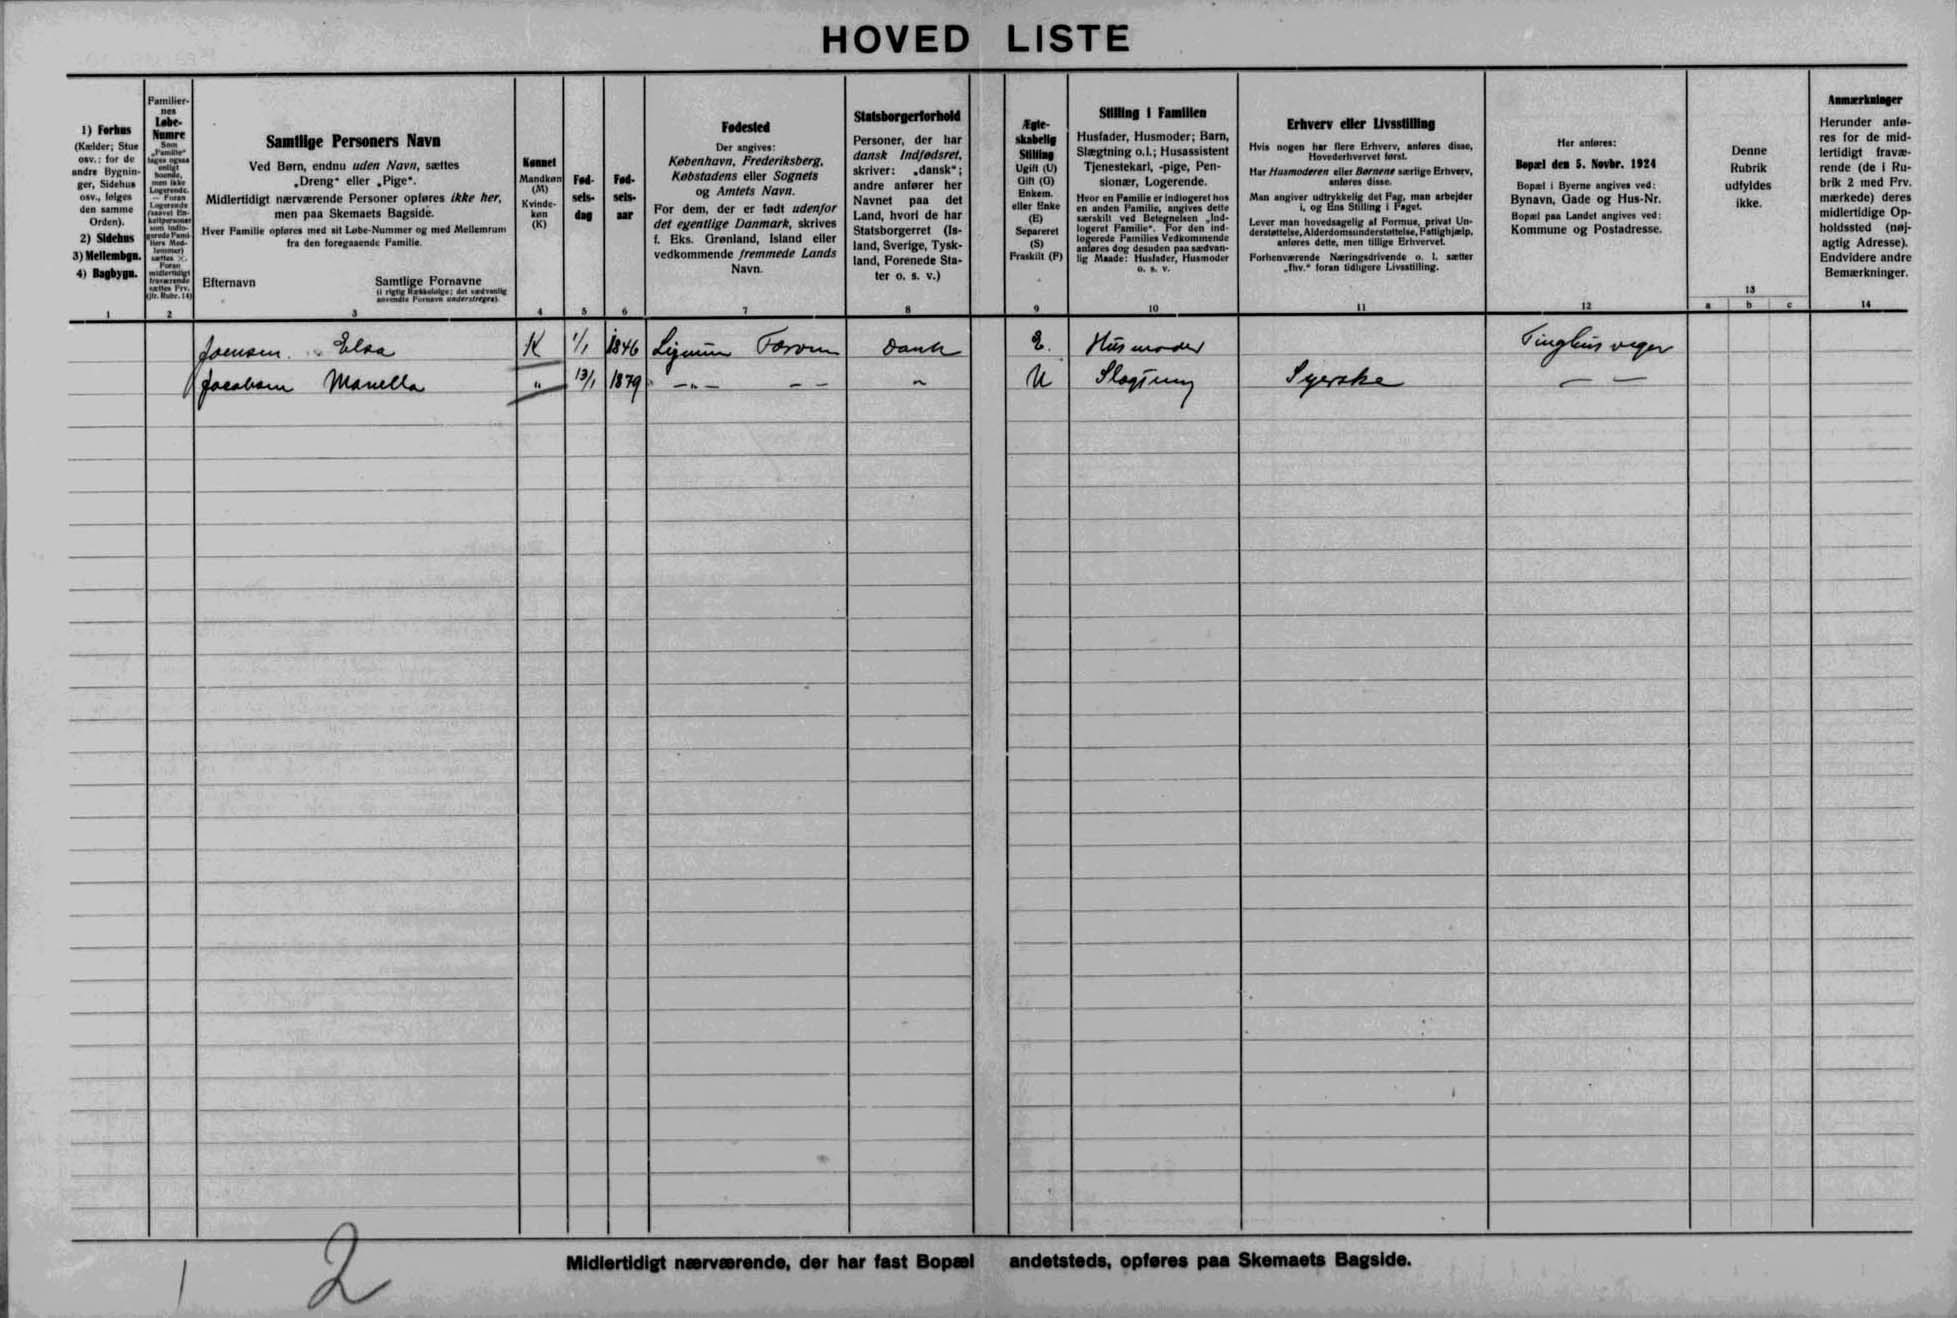 HOVED LISTE
1) Forhus
(Kælder; Stue
osv.: for de
andre Bygnin-
ger, Sidehus
osv., følges
den samme
Orden).
2) Sidehus
3) Mellembgn.
4) Bagbygn.
1
Familier-
nes
Løbe-
Numre
Som
„Familie“
tages ogsaa
enligt
boende,
men ikke
Logerende.
— Foran
Logerende
sættes ×.
Foran
midlertidigt
fraværende
sættes Frv.
(jfr. Rubr. 14)
2
Samtlige Personers Navn
Ved Børn, endnu uden Navn, sættes
„Dreng“ eller „Pige“.
Midlertidigt nærværende Personer opføres ikke her,
men paa Skemaets Bagside.
Hver Familie opføres med sit Løbe-Nummer og med Mellemrum
fra den foregaaende Familie.
Efternavn Samtlige Fornavne
(i rigtig Rækkefølge; det sædvanlig
anvendte Fornavn understreges).
3
Kønnet
Mandkøn
(M)
Kvinde-
køn
(K)
4
Fød-
sels-
dag
5
Fød-
sels-
aar
6
Fødested
Der angives:
København, Frederiksberg,
Købstadens eller Sognets
og Amtets Navn.
For dem, der er født udenfor
det egentlige Danmark, skrives
f. Eks. Grønland, Island eller
vedkommende fremmede Lands
Navn.
7
Statsborgerforhold
Personer, der har
dansk Indfødsret,
skriver: „dansk“;
andre anfører her
Navnet paa det
Land, hvori de har
Statsborgerret (Is-
land, Sverige, Tysk-
land, Forenede Sta-
ter o. s. v.)
8
Ægte-
skabelig
Stilling
Ugift (U)
Gift (G)
Enkem.
eller Enke
(E)
Separeret
(S)
Fraskilt (F)
9
Stilling i Familien
Husfader, Husmoder; Barn,
Slægtning o.l.; Husassistent
Tjenestekarl, -pige, Pen-
sionær, Logerende.
Hvor en Familie er indlogeret hos
en anden Familie, angives dette
særskilt ved Betegnelsen „Ind-
logeret Familie“. For den ind-
logerede Families Vedkommende
anføres dog desuden paa sædvan-
lig Maade: Husfader, Husmoder
o. s. v.
10
Erhverv eller Livsstilling
Hvis nogen har flere Erhverv, anføres disse,
Hovederhvervet først.
Har Husmoderen eller Børnene særlige Erhverv,
anføres disse.
Man angiver udtrykkelig det Fag, man arbejder
i, og Ens Stilling i Faget.
Lever man hovedsagelig af Formue, privat Un-
derstøttelse, Alderdomsunderstøttelse, Fattighjælp,
anføres dette, men tillige Erhvervet.
Forhenværende Næringsdrivende o. l. sætter
„fhv.“ foran tidligere Livsstilling.
11
Her anføres:
Bopæl den 5. Novbr. 1924
Bopæl i Byerne angives ved:
Bynavn, Gade og Hus-Nr.
Bopæl paa Landet angives ved:
Kommune og Postadresse.
12
Denne
Rubrik
udfyldes
ikke.
13
a b c
Anmærkninger
Herunder anfø-
res for de mid-
lertidigt fravæ-
rende (de i Ru-
brik 2 med Frv.
mærkede) deres
midlertidige Op-
holdssted (nøj-
agtig Adresse).
Endvidere andre
Bemærkninger.
14
Joensen Elsa K 1/1 1846 Dansk E. Husmoder Tinghusvegur
Jacobsen Manella „ 13/1 1879 —„— — — ~ U Slægtning Syerske — —
Midlertidigt nærværende, der har fast Bopæl andetsteds, opføres paa Skemaets Bagside.
1 2